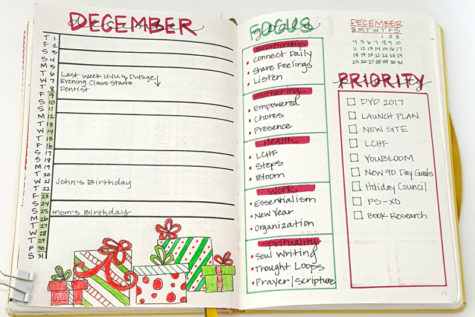 DECEMBER
T 1
F 2
S 3
S 4
M 5
T 6
W 7
T 8
F 9
S 10
S 11
M 12
T 13
W 14
T 15
F 16
S 17
S 18
M 19
T 20
W 21
T 22
F 23
S 24
S 25
M 26
T 27
W 28
T 29
F 30
S 31
Last week
Evening Class Starts
Dentist
John's Birthday
mom's Birthday
goals
Relationships
• Connect Daily
• Share Feelings
• Listen
Mothering
• Empowered
• Chores
• Presence
Health
• LCHF
• Steps
• Bloom
Work
• Essentialism
• New Year
• Organization
Spirituality
• Soul Writing
• Thought Loops
• Prayer/Scripture
DECEMBER
S M T W T F S
1 2 3
4 5 6 7 8 9 10
11 12 13 14 15 16 17
18 19 20 21 22 23 24
25 26 27 28 29 30 31
PRIORITY
DYD 2017
LAUNCH PLAN
NEW SITE
LCHF
YOUBLOOM
Now 90 Day Goals
Holiday Council
PS-XO
Book Research